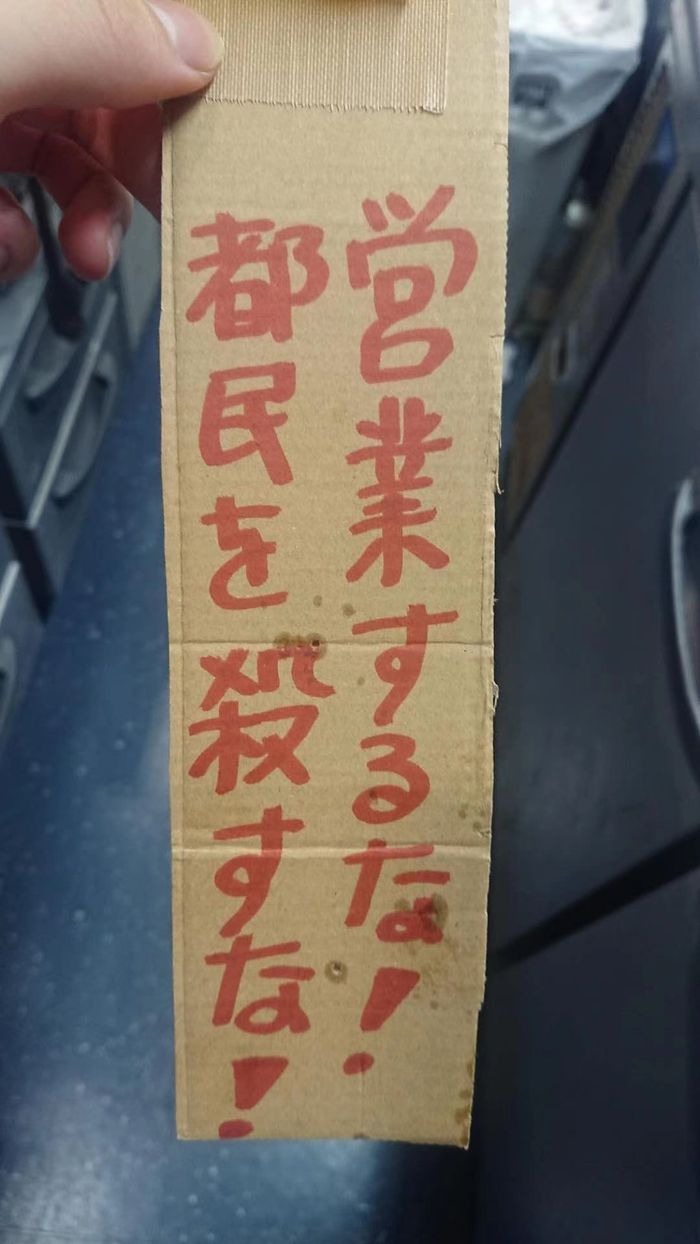 営業するな!
都民を殺すな!